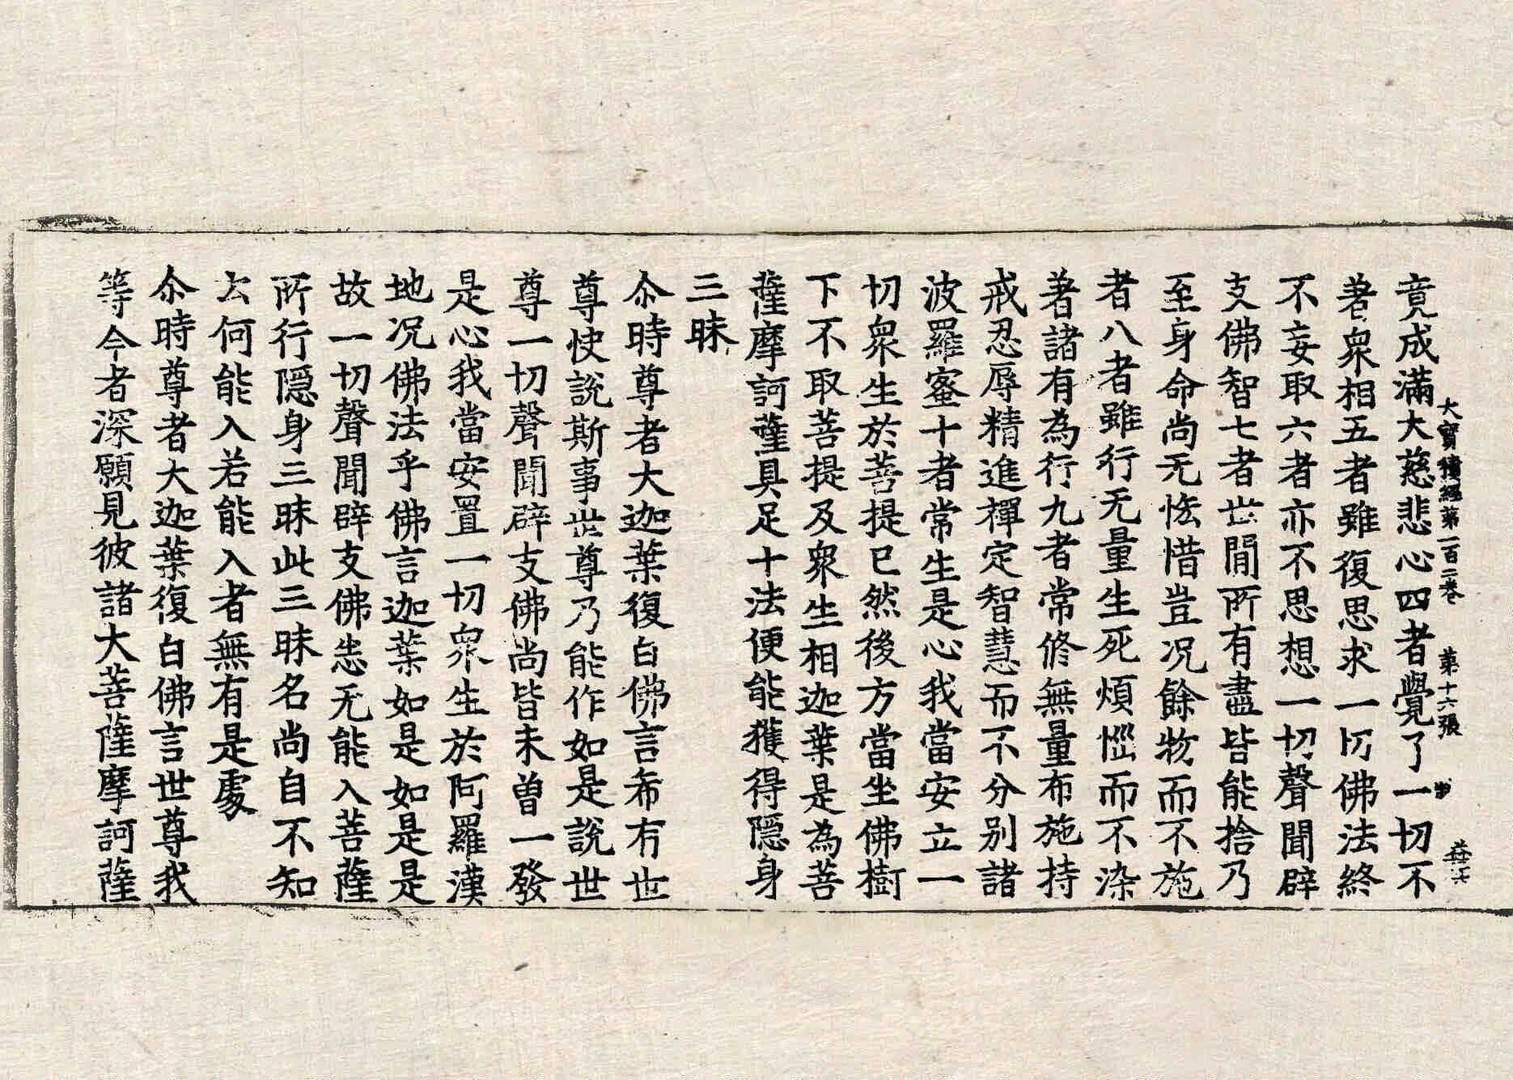 大寶積經第一百二卷　第十六張
竟成滿大慈悲心四者覺了一切不
著眾相五者雖復思求一切佛法終
不妄取六者亦不思想一切聲聞辟
支佛智七者世間所有盡皆能捨乃
至身命尚无恡惜豈況餘物而不施
者八者雖行无量生死煩惱而不染
著諸有為行九者常修無量布施持
戒忍辱精進禪定智慧而不分别諸
波羅蜜十者常生是心我當安立一
切眾生於菩提已然後方當坐佛樹
下不取菩提及眾生相迦葉是為菩
薩摩訶薩具足十法便能獲得隱身
三昧
尒時尊者大迦葉復白佛言希有世
尊快說斯事世尊乃能作如是說世
尊一切聲聞辟支佛尚皆未曾一發
是心我當安置一切眾生於阿羅漢
地況佛法乎佛言迦葉如是如是是
故一切聲聞辟支佛悉无能入菩薩
所行隱身三昧此三昧名尚自不知
云何能入若能入者無有是處
尒時尊者大迦葉復白佛言世尊我
等今者深願見彼諸大菩薩摩訶薩